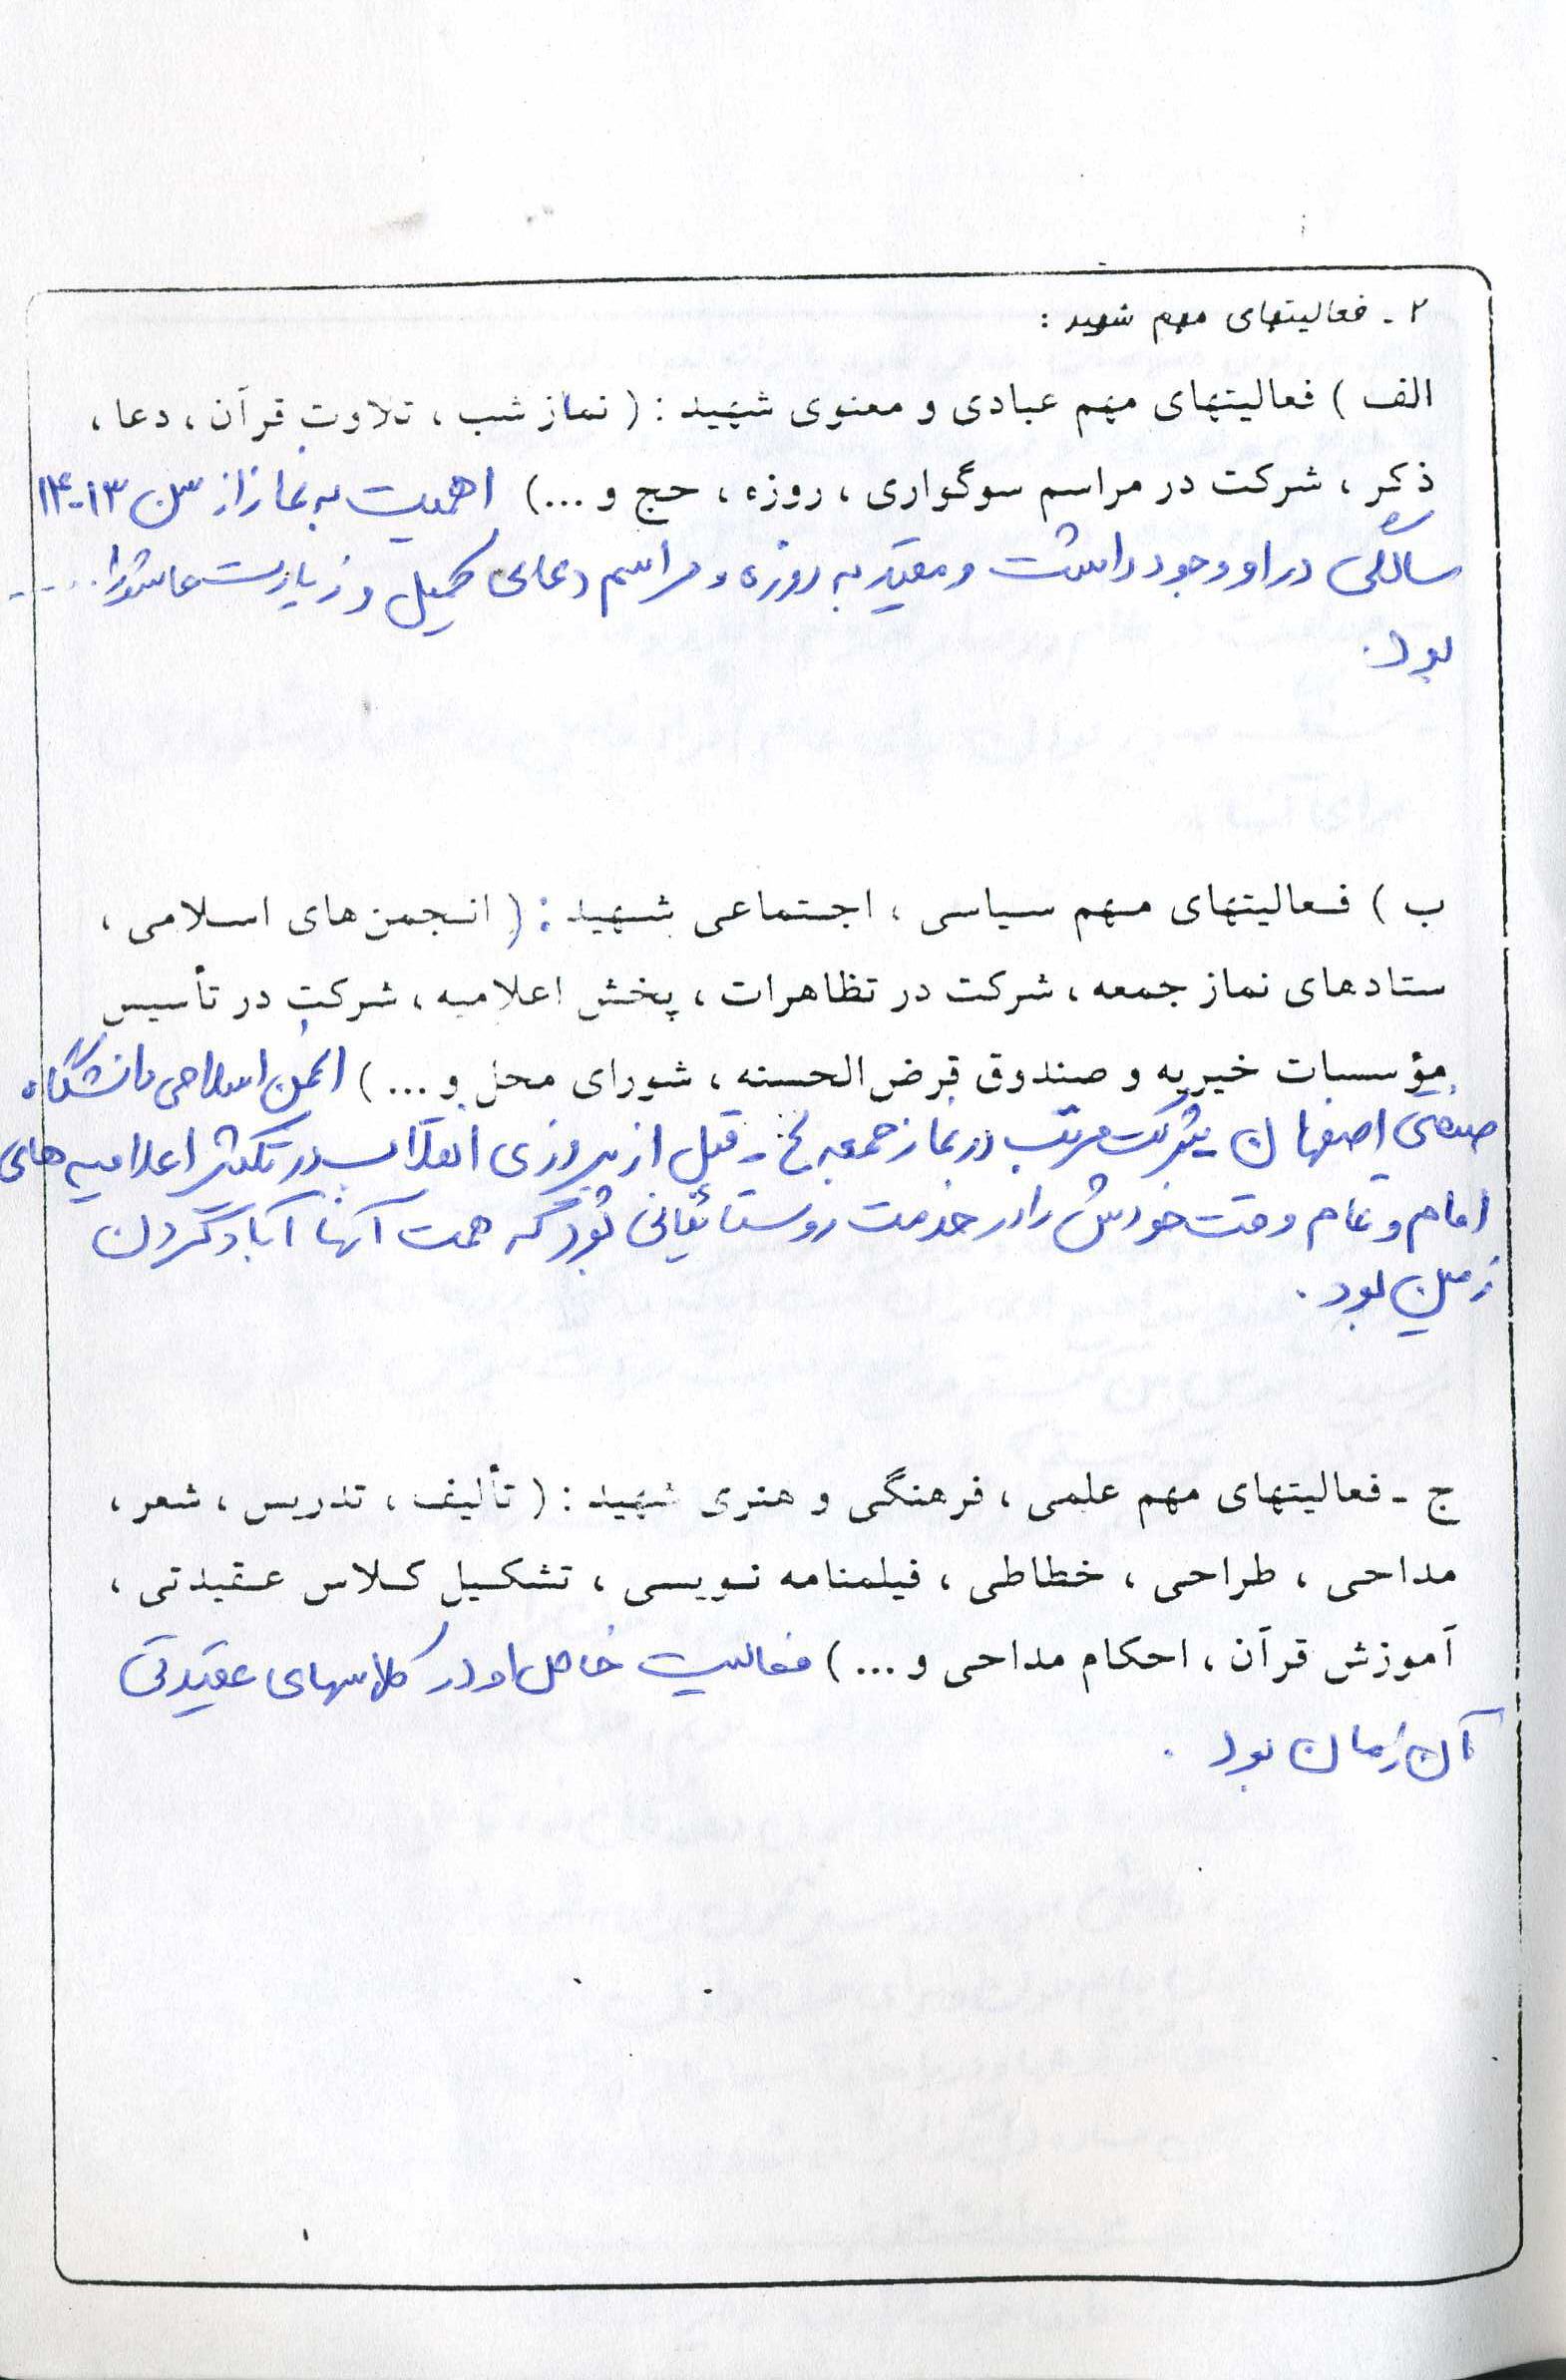 ۲ - فعالیتهای مهم شهید :
الف ) فعالیتهای مهم عبادی و معنوی شهید : ( نماز شب ، تلاوت قرآن ، دعا ،
ذکر ، شرکت در مراسم سوگواری ، روزه ، حج و ... ) اهمیت به نماز از سن ۱۳-۱۴
سالگی در او وجود داشت و مقید به روزه و مراسم دعای کمیل و زیارت عاشورا ....
بود .
ب ) فعالیتهای مهم سیاسی ، اجتماعی شهید : ( انجمن های اسلامی ،
ستادهای نماز جمعه ، شرکت در تظاهرات ، پخش اعلامیه ، شرکت در تأسیس
مؤسسات خیریه و صندوق قرض الحسنه ، شورای محل و ... ) انجمن اسلامی دانشگاه
صنعتی اصفهان - شرکت مرتب در نماز جمعه - قبل از پیروزی انقلاب در تکثیر اعلامیه های
امام و تمام وقت خودش را در خدمت روستائیانی بود که همت آنها آباد کردن
زمین بود .
ج - فعالیتهای مهم علمی ، فرهنگی و هنری شهید : ( تألیف ، تدریس ، شعر ،
مداحی ، طراحی ، خطاطی ، فیلمنامه نویسی ، تشکیل کلاس عقیدتی ،
آموزش قرآن ، احکام مداحی و ... ) فعالیت خاص او در کلاسهای عقیدتی
آن زمان بود .